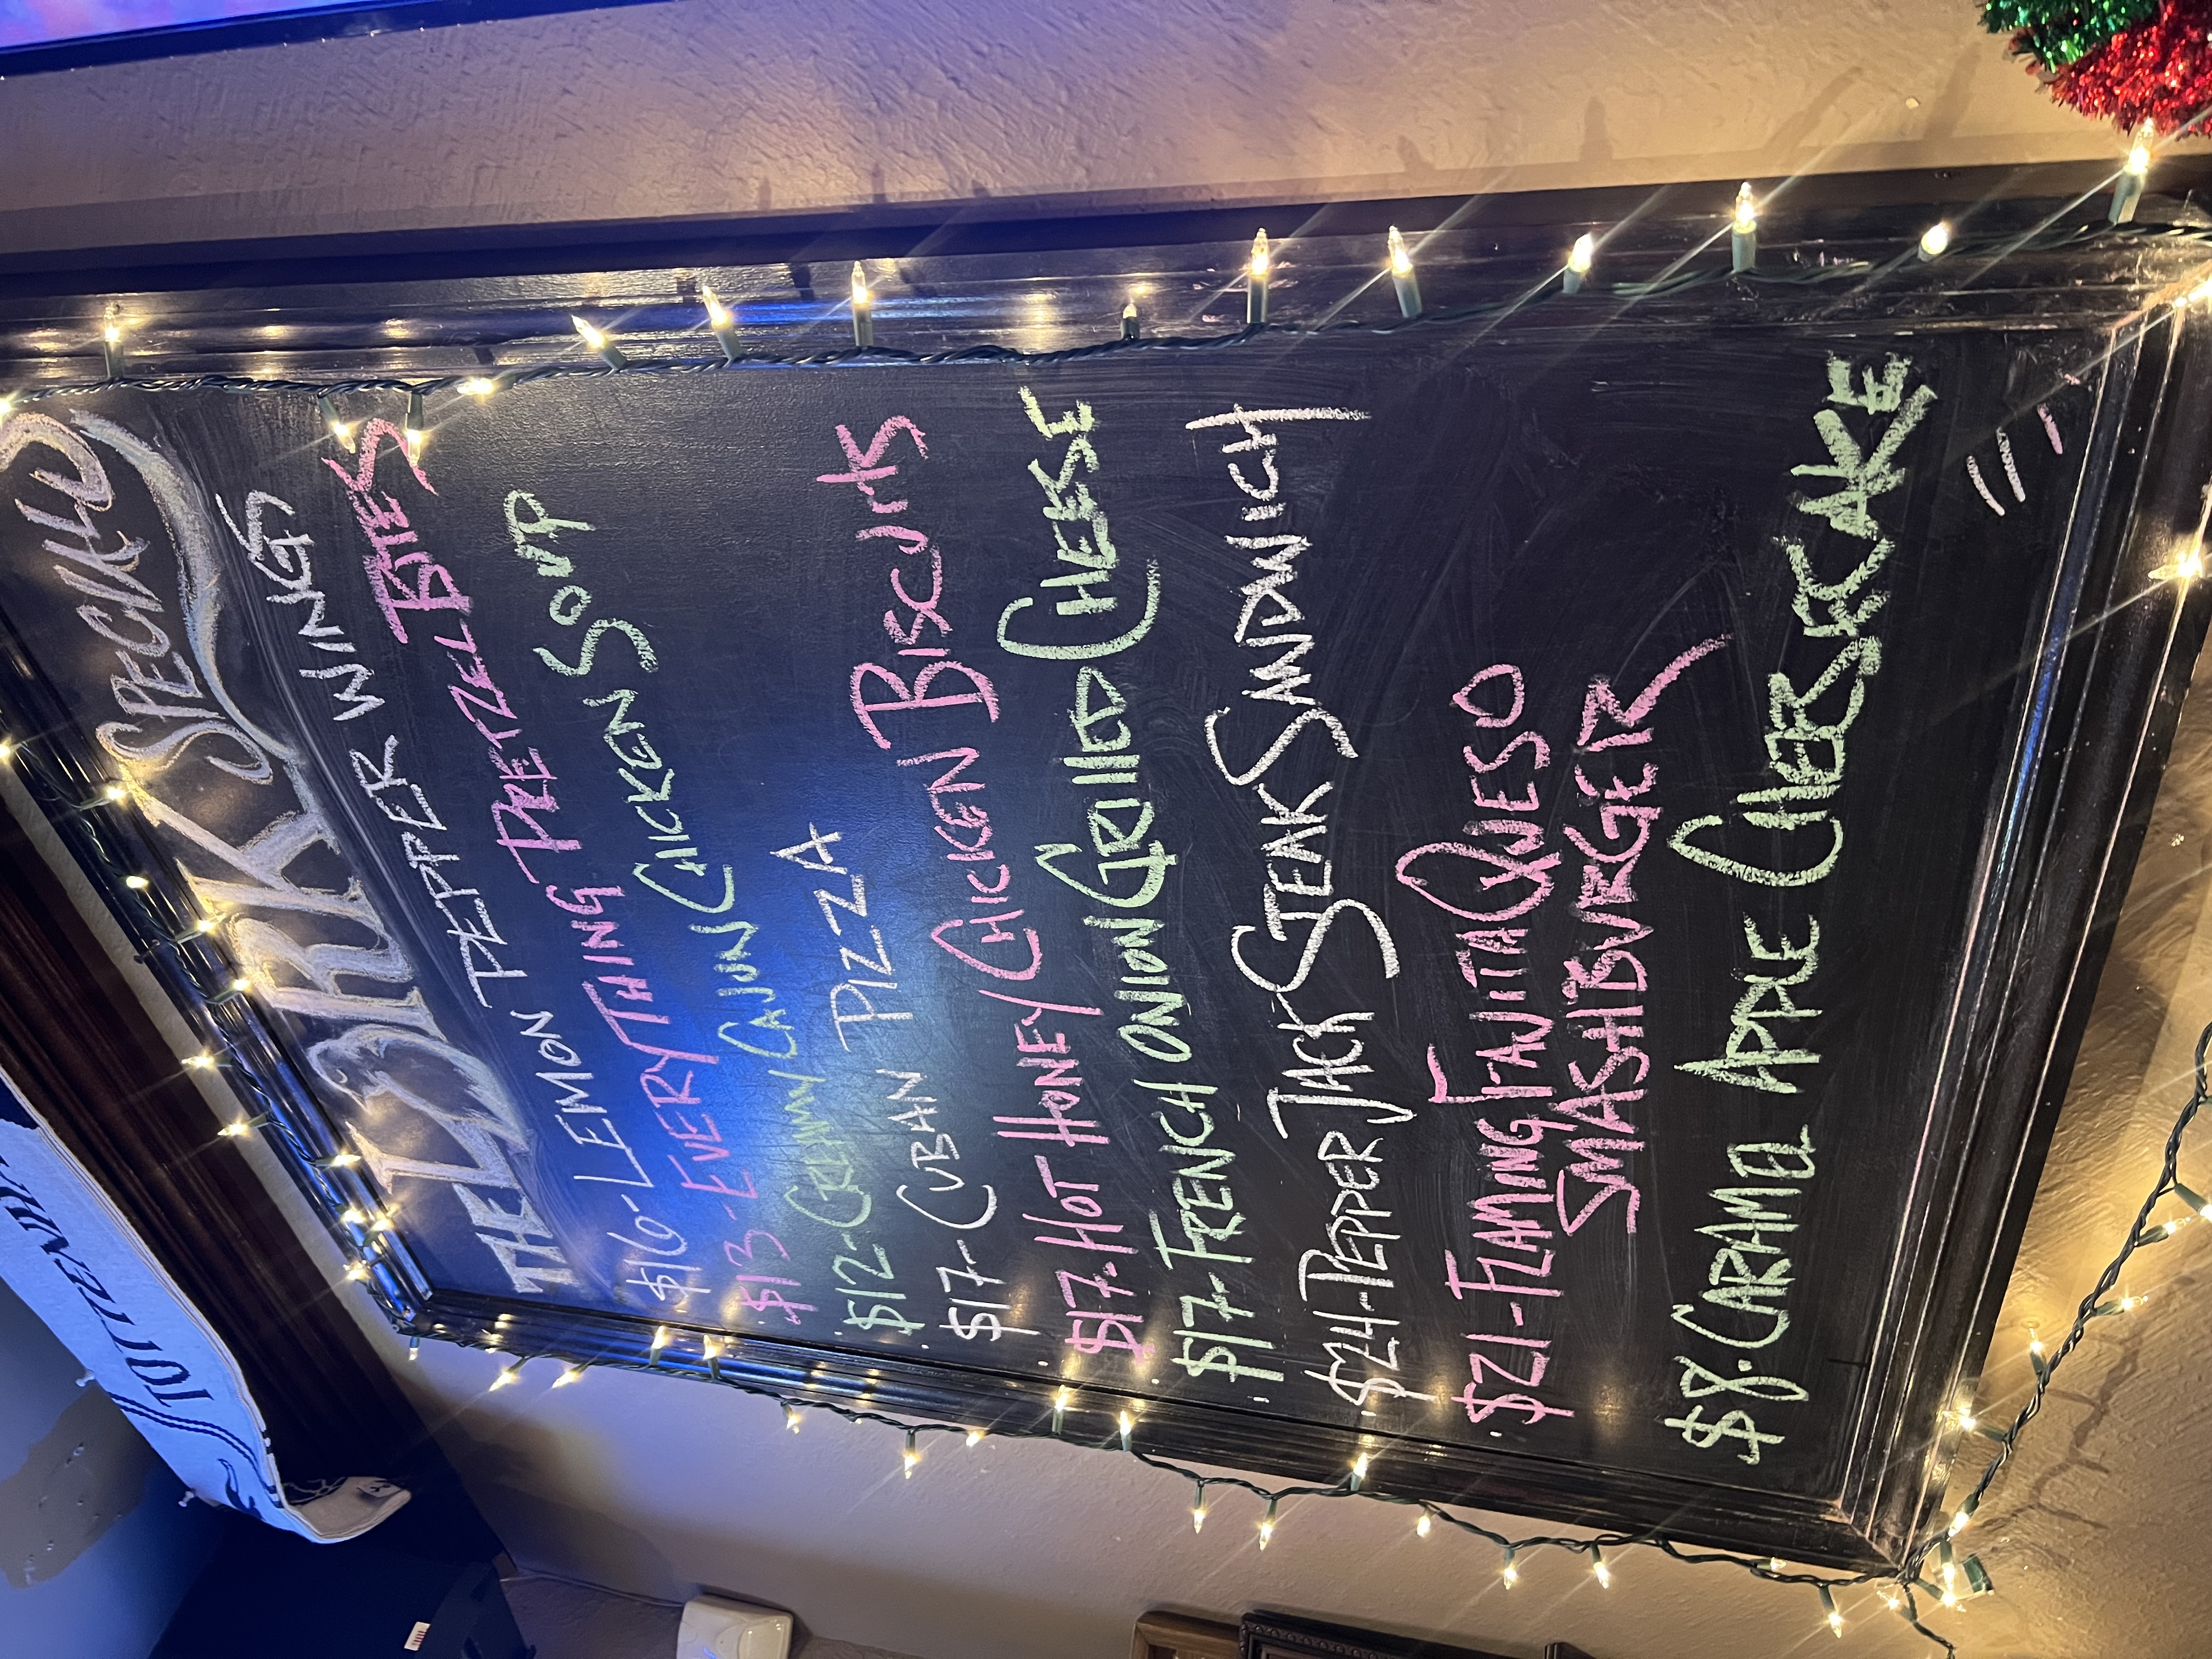 THE LARK SPECIALS
$16-LEMON PEPPER WINGS
$13-EVERYTHING PRETZEL BITES
$12-CREAMY CAJUN CHICKEN SOUP
$17-CUBAN PIZZA
$17-HOT HONEY CHICKEN BISCUITS
$17-FRENCH ONION GRILLED CHEESE
$24-PEPPER JACK STEAK SANDWICH
$21-FLAMING FAJITA QUESO
SMASHBURGER
$8-CARAMEL APPLE CHEESECAKE